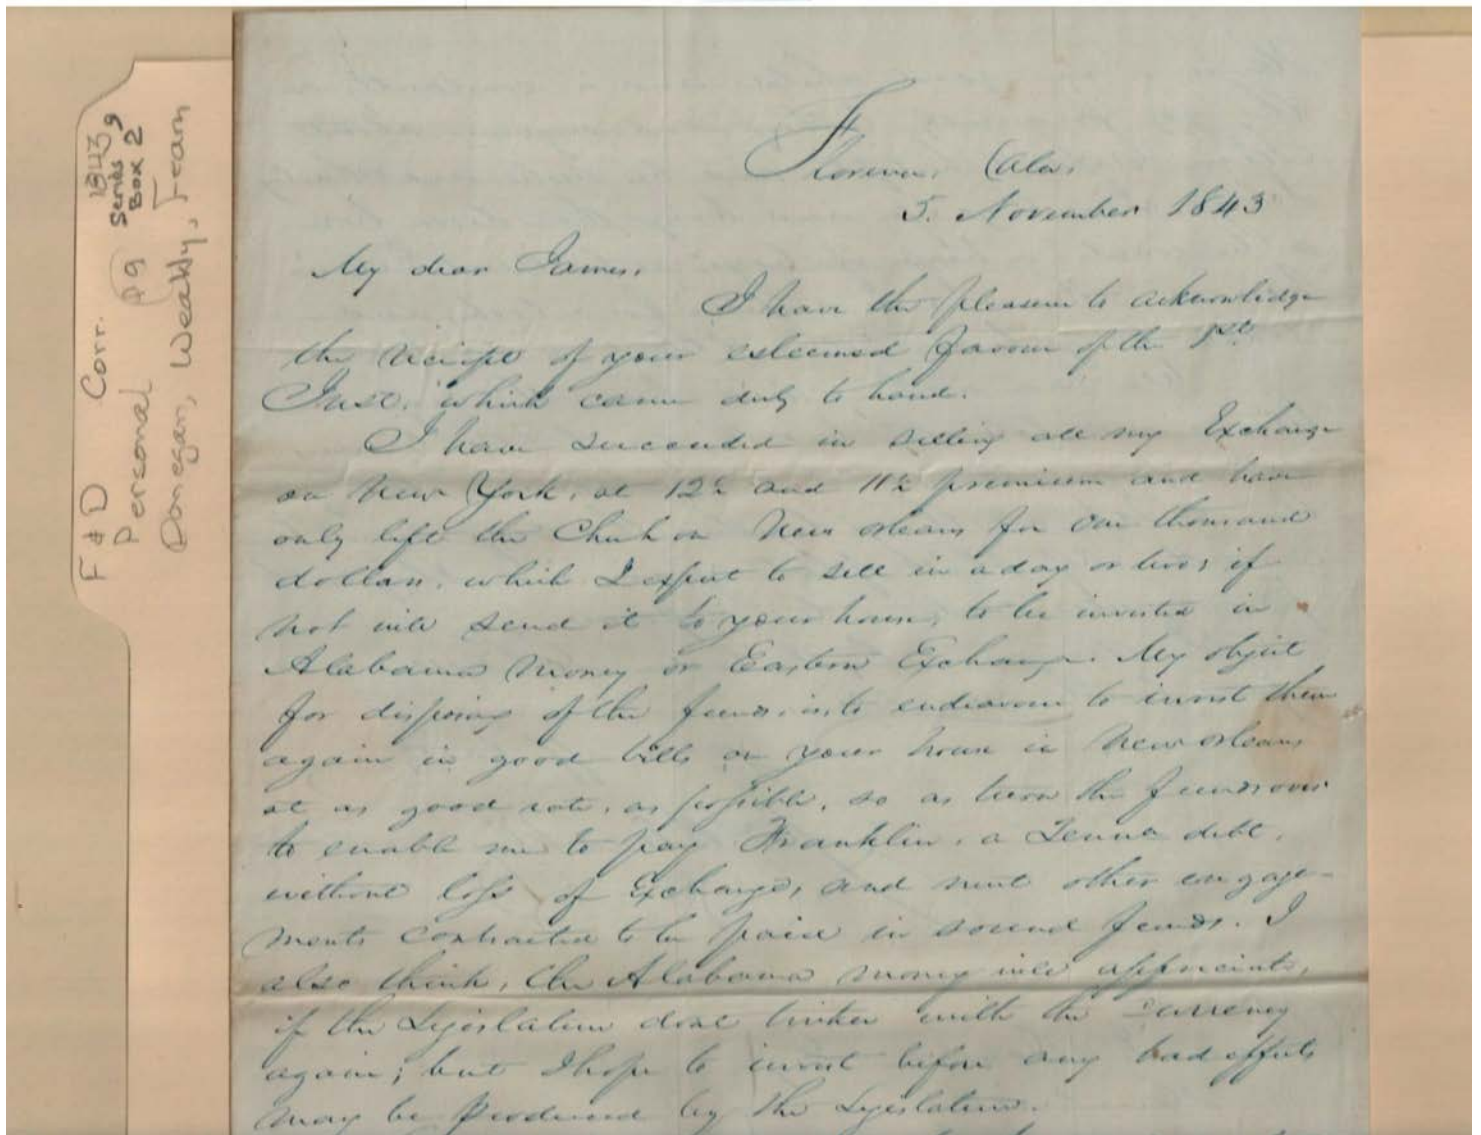 F & D Corr. 1843
Personal P9 Series 9
Box 2
Donegan, Weakly, Fearn
Florence, Ala,
5. November 1843
My dear James,
I have the pleasure to acknowledge
the receipt of your esteemed favour of the 1st
Inst. which came duly to hand.
I have succeeded in selling all my Exchange
on New York, at 12½ and 11½ premium and have
only left the Check on New orleans for one thousand
dollars, which I expect to sell in a day or two; if
not will send it to your house, to be invested in
Alabama money or Eastern Exchange. My object
for disposing of the funds, is to endeavour to invest them
again in good bills on your house in New orleans
at as good rate, as possible, so as turn the funds over
to enable me to pay Franklin, a Tenna debt,
without loss of Exchange, and meet other engage-
ments contracted to be paid in sound funds. I
also think, the Alabama money will appreciate,
if the Legislature dont tinker with the currency
again; but I hope to invest before any bad effects
may be produced by the Legislature.